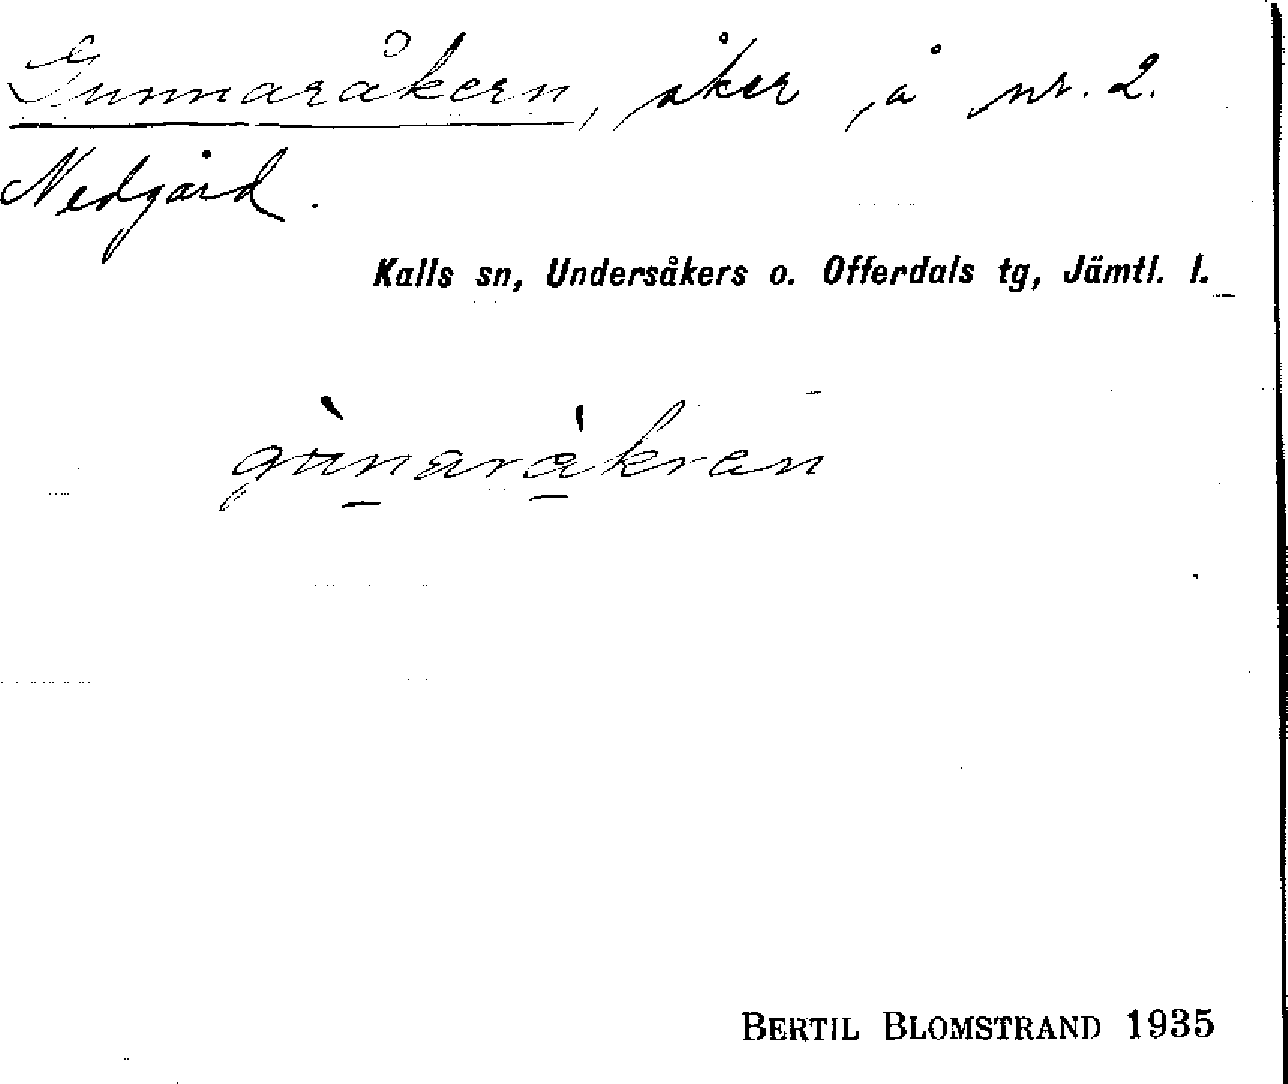 Gunnaråkern, åker å nr. 2.
Nedgård.
Kalls sn, Undersåkers o. Offerdals tg, Jämtl. l.
gùnaråkran
BERTIL BLOMSTRAND 1935